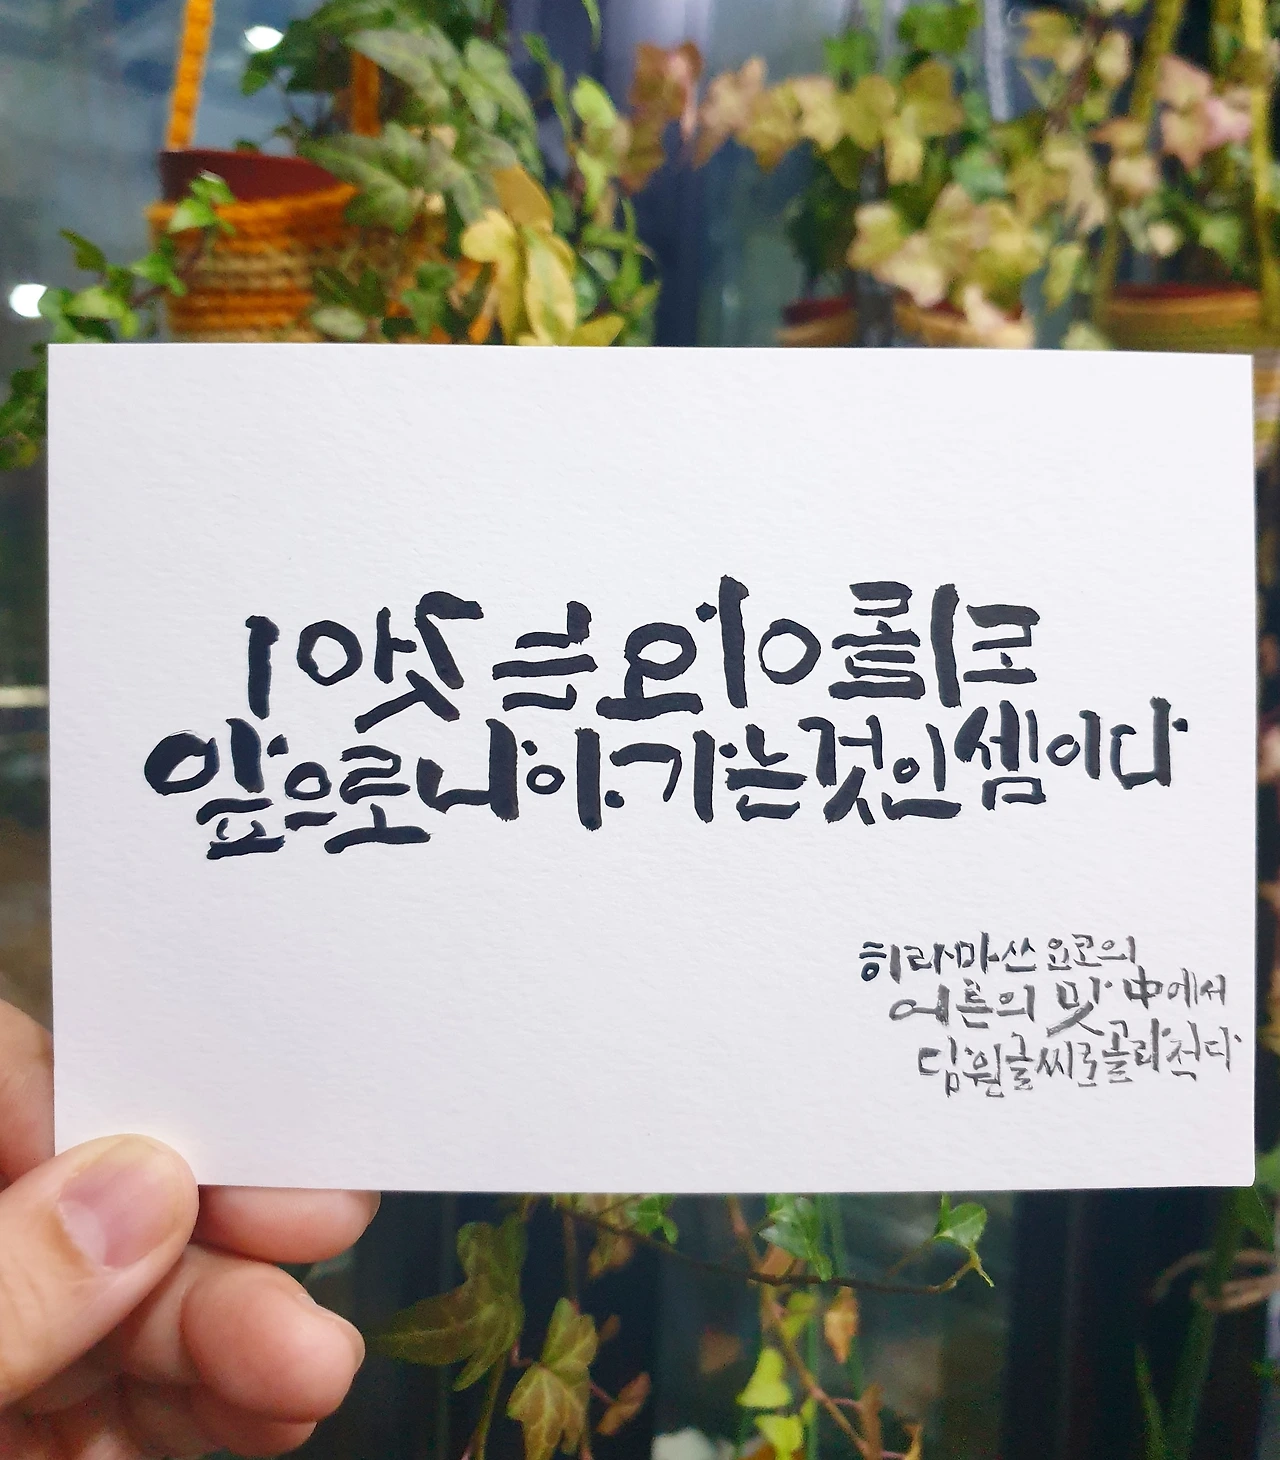 되돌아오는 것이
앞으로 나아가는 것인 셈이다
히라마쓰 요코의
어른의 맛 中에서
담원글씨로 골라적다